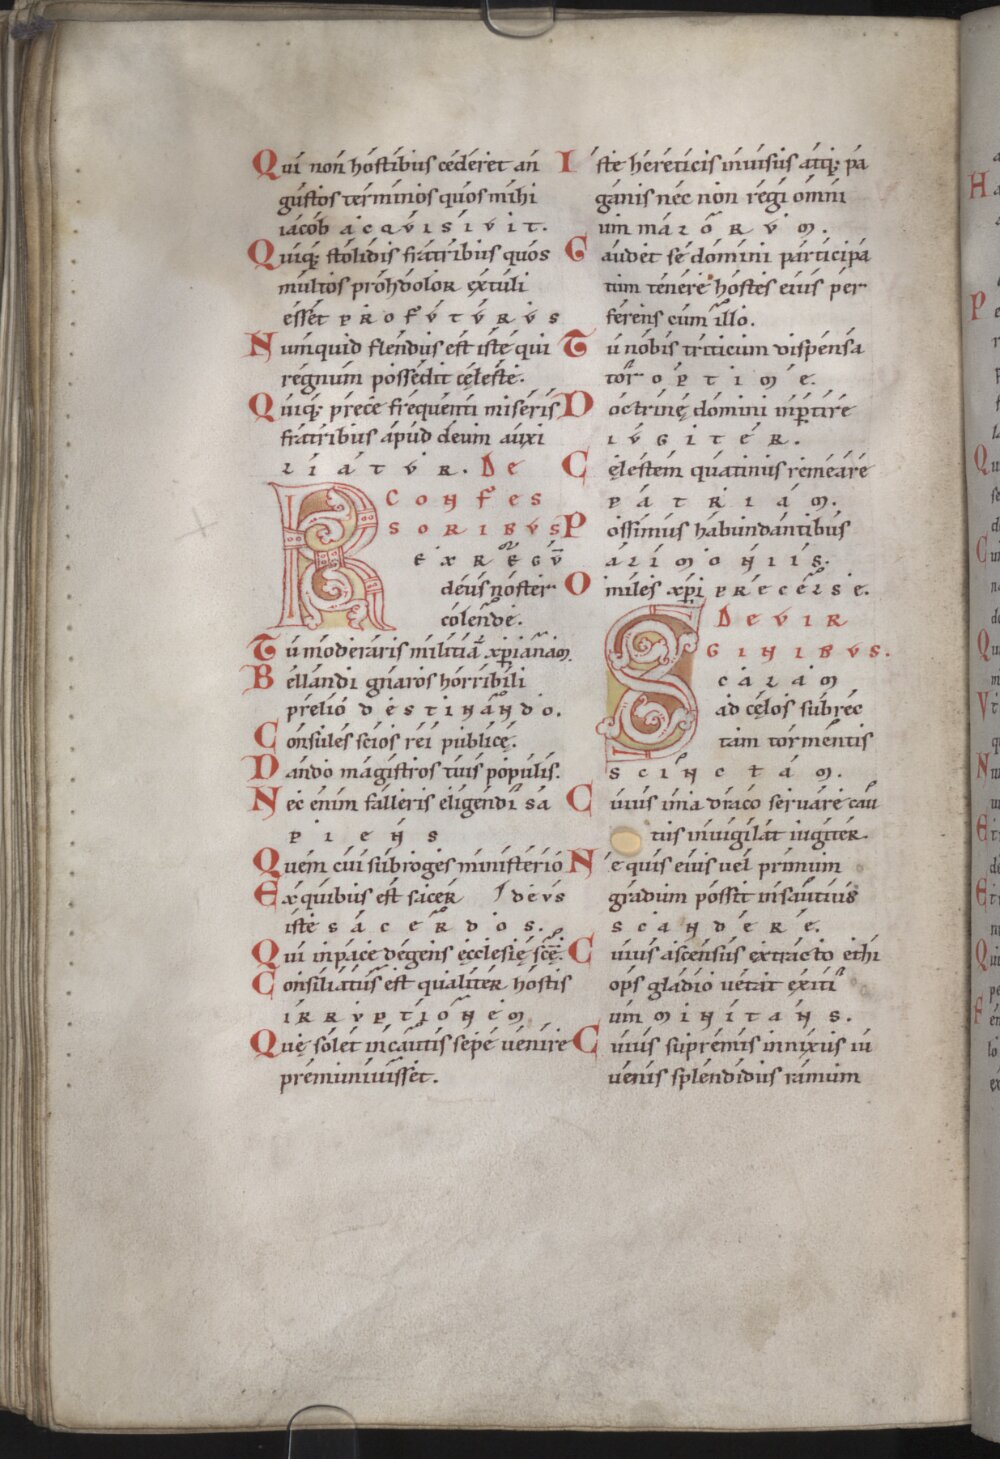 Qui non hostibus cederet an
gustos terminos quos mihi
iacob acqvisivit.
Quiq; stolidis fratribus quos
multos prohdolor extuli
esset profvtvrvs
Numquid flendus est iste qui
regnum possedit cęleste.
Quiq; prece frequenti miseris
fratribus apud deum auxi
liatvr. De
Confes
soribvs
Rex regū
deus noster
colende.
Tu moderaris militiā xp̄ianam.
Bellandi gnaros horribili
prelio destinando.
Consules scios rei publicę.
Dando magistros tuis populis.
Nec enim falleris eligendi sa
piens
Quem cui subroges ministerio
Ex quibus est sacer devs
iste sacerdos.
Qui in pace degens ęcclesię scę̄.
Consiliatus est qualiter hostis
irrvptionem
Quę solet incautis sepe uenire
premuniuisset.
Iste hereticis inuisus atq; pa
ganis nec non regi omni
um maiorvm.
Gaudet se domini participa
tum tenere hostes eius per
ferens cum illo.
Tu nobis triticum dispensa
tor optime.
Doctrinę domini inp̱tire
ivgiter.
Cęlestem quatinus remeare
patriam.
Possimus habundantibus
alimoniis.
O miles xp̄i precelse.
De vir
ginibvs.
Scalam
ad cęlos subrec
tam tormentis
scinctam.
Cuius ima draco seruare cau
tus inuigilat iugiter.
Ne quis eius uel primum
gradum possit insautius
scandere.
Cuius ascensus extracto ethi
ops gladio uetat exiti
um minitans.
Cuius supremis innixus iu
uenis splendidus ramum